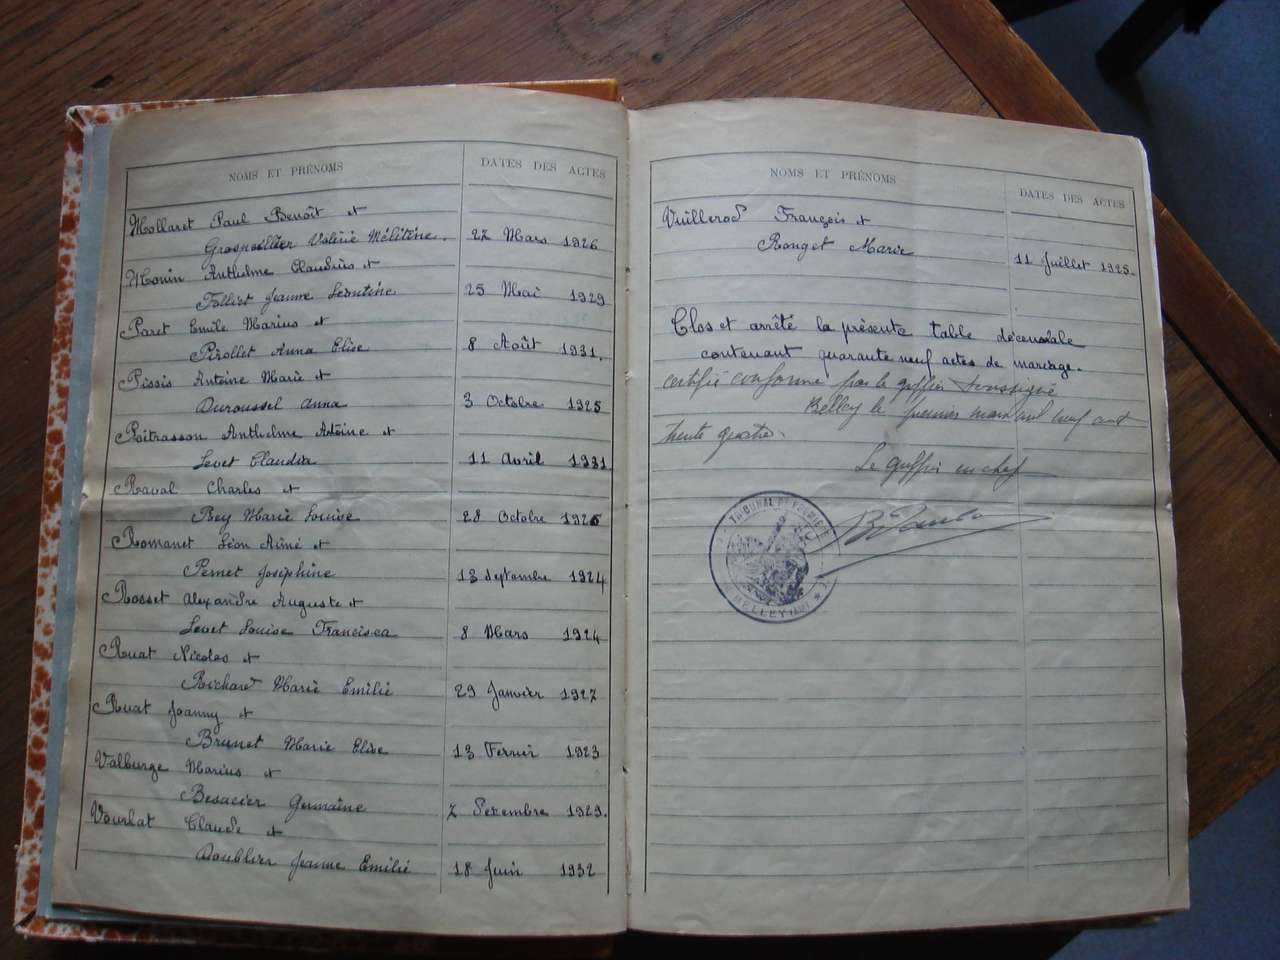 NOMS ET PRÉNOMS DATES DES ACTES
Mollaret Paul Benoît et
Grospellier Valérie Mélitine. 27 Mars 1926
Monin Anthelme Claudius et
Folliet Jeanne Léontine 25 Mai 1929
Paret Emile Marius et
Pirollet Anna Elise 8 Août 1931.
Pissis Antoine Marie et
Duroussel Anna 3 Octobre 1925
Poitrasson Anthelme Antoine et
Levet Claudia 11 Avril 1931
Raval Charles et
Rey Marie Louise 28 Octobre 1926
Romanet Léon Aimé et
Pernet Joséphine 13 Septembre 1924
Rosset Alexandre Auguste et
Levet Louise Francisca 8 Mars 1924
Ruat Nicolas et
Richard Marie Emilie 29 Janvier 1927
Ruat Joanny et
Brunet Marie Elise 13 Fevrier 1923
Valburge Marius et
Besacier Germaine 7 Décembre 1929.
Vourlat Claude et
Doublier Jeanne Emilie 18 Juin 1932
NOMS ET PRÉNOMS DATES DES ACTES
Vuillerod François et
Ronget Marie 11 Juillet 1925.
Clos et arrêté la présente table décennale
contenant quarante neuf actes de mariage.
certifié conforme par le greffier soussigné
Belley le premier mars mil neuf cent
trente quatre.
Le greffier en chef
TRIBUNAL DE
BELLEY (AIN)